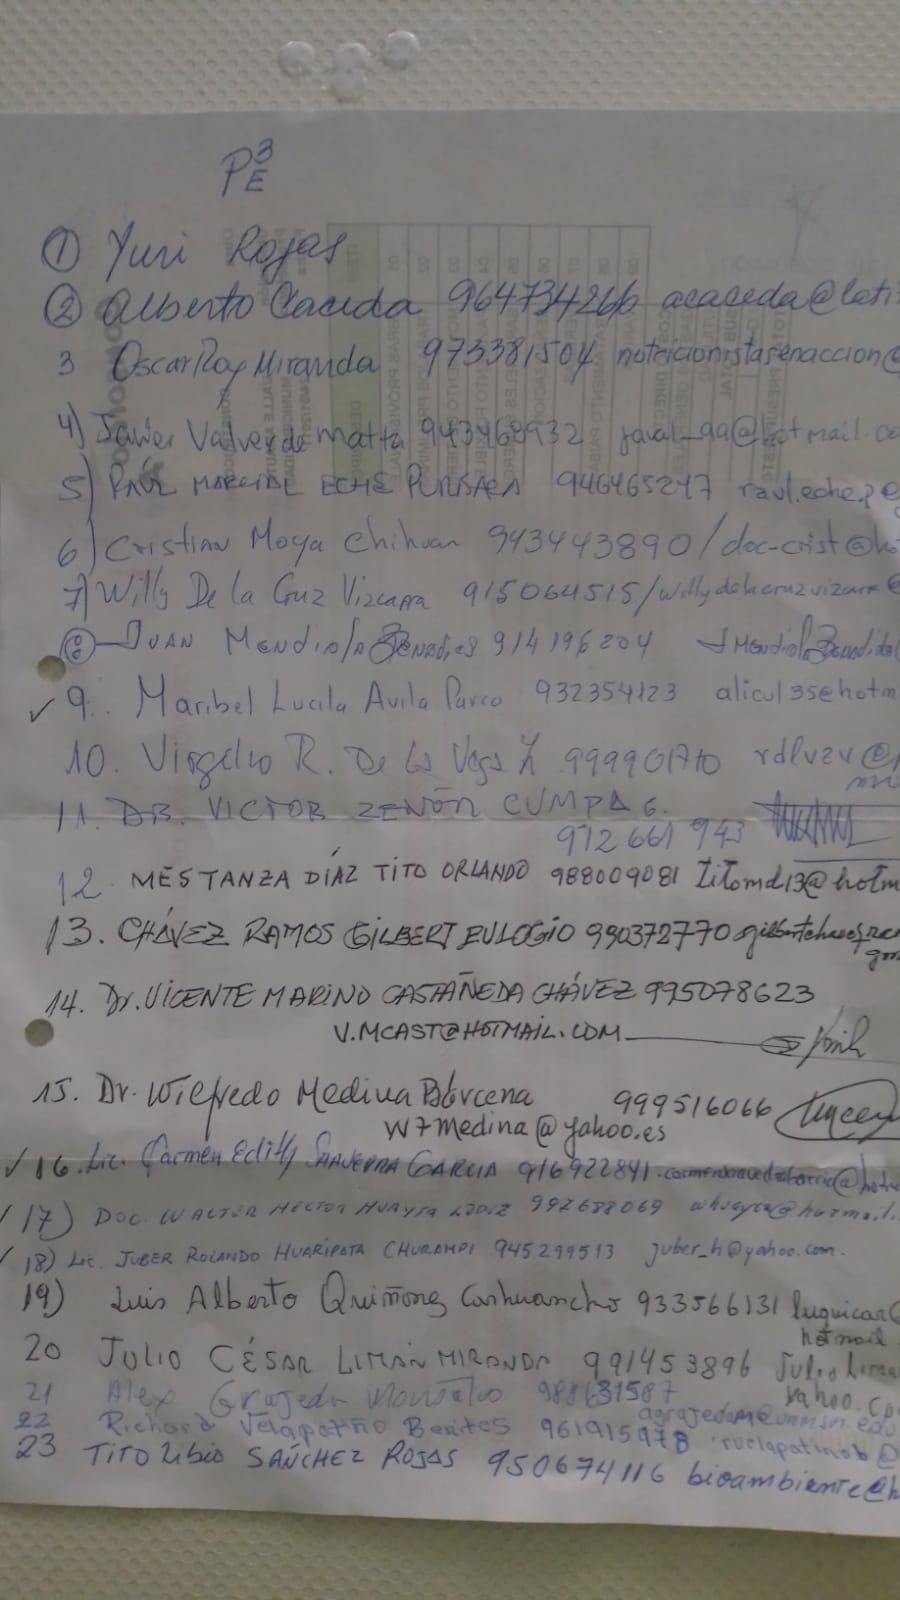 PE3
① Yuri Rojas
② Alberto Caceda 964734266 acaceda@lati
3 Oscar Roy Miranda 973381504 nutricionistasenaccion@
4) Javier Valverde Matta 943468932 javal_99@hotmail.co
5) RAÚL MARCIAL ECHE PURISACA 946465247 raul.eche.p@
6) Cristian Moya Chihuan 943443890/doc-crist@ho
7) Willy De la Cruz Vizcarra 915064515/willydelacruzvizcarra@
⑧ JUAN Mendiola Benadies 914196204
✓ 9. Maribel Lucila Avila Parco 932354123 alicul35@hotm
10. Virgilio R. De la Vega Z 999901770 rdlvzv@
11. DR. VICTOR ZENÓN CUMPA G.
972661943
12 MESTANZA DÍAZ TITO ORLANDO 988009081 titomd13@hotm
13. CHÁVEZ RAMOS GILBERT EULOGIO 990372770
14. Dr. VICENTE MARINO CASTAÑEDA CHÁVEZ 995078623
V.MCAST@HOTMAIL.COM
15. Dr. Wilfredo Medina Bárcena 999516066
W7medina@yahoo.es
✓ 16. Lic. Carmen Edith SAAVEDRA GARCIA 916922841
✓ 17) DOC. WALTER HECTOR HUAYTA 992688069
✓ 18) Lic. JUBER ROLANDO HUARIPATA CHURAMPI 945299513 juber_h@yahoo.com.
19) Luis Alberto Quiñonez Carhuancho 933566131 luquicar@
hotmail
20 JULIO CÉSAR LIMÁN MIRANDA 991453896 Julio lima
yahoo.co
21 Alex Grajeda Montalvo
agrajedam@unmsm.edu
22 Richard Velapatiño Benites 961915978 rvelapatinob@
23 TITO LIBIO SÁNCHEZ ROJAS 950674116 bioambiente@h